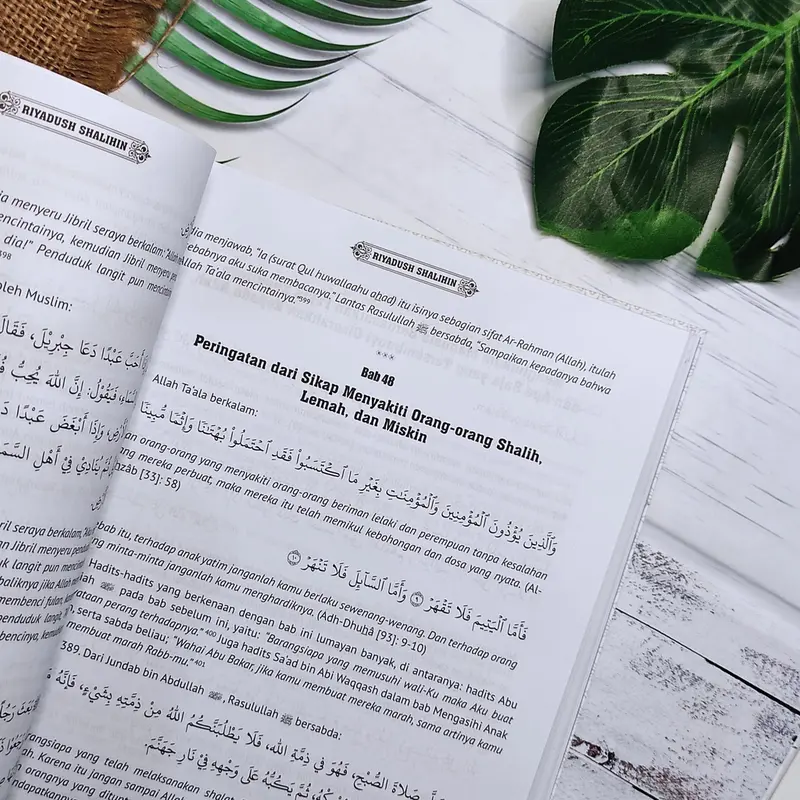 RIYADUSH SHALIHIN
menyeru Jibril seraya berkalam: "Allah
mencintainya, kemudian Jibril menyeru
dia!" Penduduk langit pun mencintai
oleh Muslim:
أَحَبَّ عَبْدًا دَعَا جِبْرِيْلَ، فَقَالَ
فَيَقُوْلُ: إِنَّ اللهَ يُحِبُّ
وَإِذَا أَبْغَضَ عَبْدًا
يُنَادِيْ فِيْ أَهْلِ السَّمَاءِ
seraya berkalam,
Jibril menyeru
penduduk langit pun
baliknya jika Allah
membenci fulan,
penduduk langit
bencinya,
RIYADUSH SHALIHIN
dia menjawab, "Ia (surat Qul huwallaahu ahad) itu isinya sebagian sifat Ar-Rahman (Allah), itulah
sebabnya aku suka membacanya." Lantas Rasulullah ﷺ bersabda, "Sampaikan kepadanya bahwa
Allah Ta'ala mencintainya."¹⁹⁹
***
Bab 48
Peringatan dari Sikap Menyakiti Orang-orang Shalih,
Lemah, dan Miskin
Allah Ta'ala berkalam:
وَٱلَّذِينَ يُؤْذُونَ ٱلْمُؤْمِنِينَ وَٱلْمُؤْمِنَٰتِ بِغَيْرِ مَا ٱكْتَسَبُوا۟ فَقَدِ ٱحْتَمَلُوا۟ بُهْتَٰنًا وَإِثْمًا مُّبِينًا
orang-orang yang menyakiti orang-orang beriman lelaki dan perempuan tanpa kesalahan
yang mereka perbuat, maka mereka itu telah memikul kebohongan dan dosa yang nyata. (Al-
[33]: 58)
فَأَمَّا ٱلْيَتِيمَ فَلَا تَقْهَرْ ۝٩ وَأَمَّا ٱلسَّآئِلَ فَلَا تَنْهَرْ ۝١٠
sebab itu, terhadap anak yatim janganlah kamu berlaku sewenang-wenang. Dan terhadap orang
yang minta-minta janganlah kamu menghardiknya. (Adh-Dhuhâ [93]: 9-10)
Hadits-hadits yang berkenaan dengan bab ini lumayan banyak, di antaranya: hadits Abu
ﷺ pada bab sebelum ini, yaitu: "Barangsiapa yang memusuhi wali-Ku maka Aku buat
pernyataan perang terhadapnya."⁴⁰⁰ Juga hadits Sa'ad bin Abi Waqqash dalam bab Mengasihi Anak
serta sabda beliau; "Wahai Abu Bakar, jika kamu membuat mereka marah, sama artinya kamu
membuat marah Rabb-mu."⁴⁰¹
389. Dari Jundab bin Abdullah ؓ, Rasulullah ﷺ bersabda:
صَلَّى صَلَاةَ الصُّبْحِ، فَهُوَ فِي ذِمَّةِ اللهِ، فَلَا يَطْلُبَنَّكُمُ اللهُ مِنْ ذِمَّتِهِ بِشَيْءٍ، فَإِنَّهُ
ثُمَّ يَكُبُّهُ عَلَى وَجْهِهِ فِي نَارِ جَهَنَّمَ
yang telah melaksanakan shalat
Karena itu jangan sampai Allah
orangnya yang